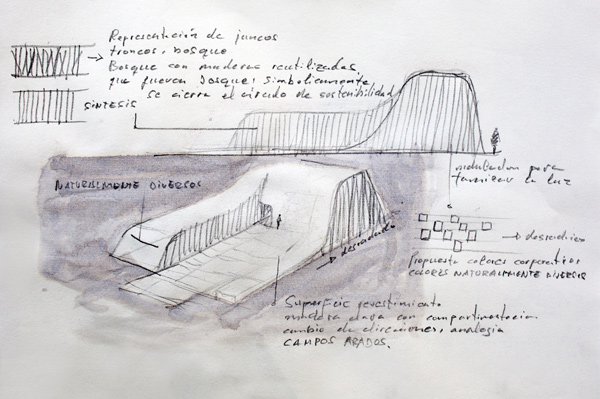 Representación de juncos
troncos, bosque
Bosque con maderas reutilizadas
que fueron bosque, simbolicamente
se cierra el círculo de sostenibilidad
SINTESIS
para
tamizar la luz
NATURALMENTE DIVERSOS
desradado
Propuesta colores corporativos
COLORES NATURALMENTE DIVERSOS
Superficie revestimiento
madera clara con compartimentacion
cambio de direcciones, analogia
CAMPOS ARADOS.